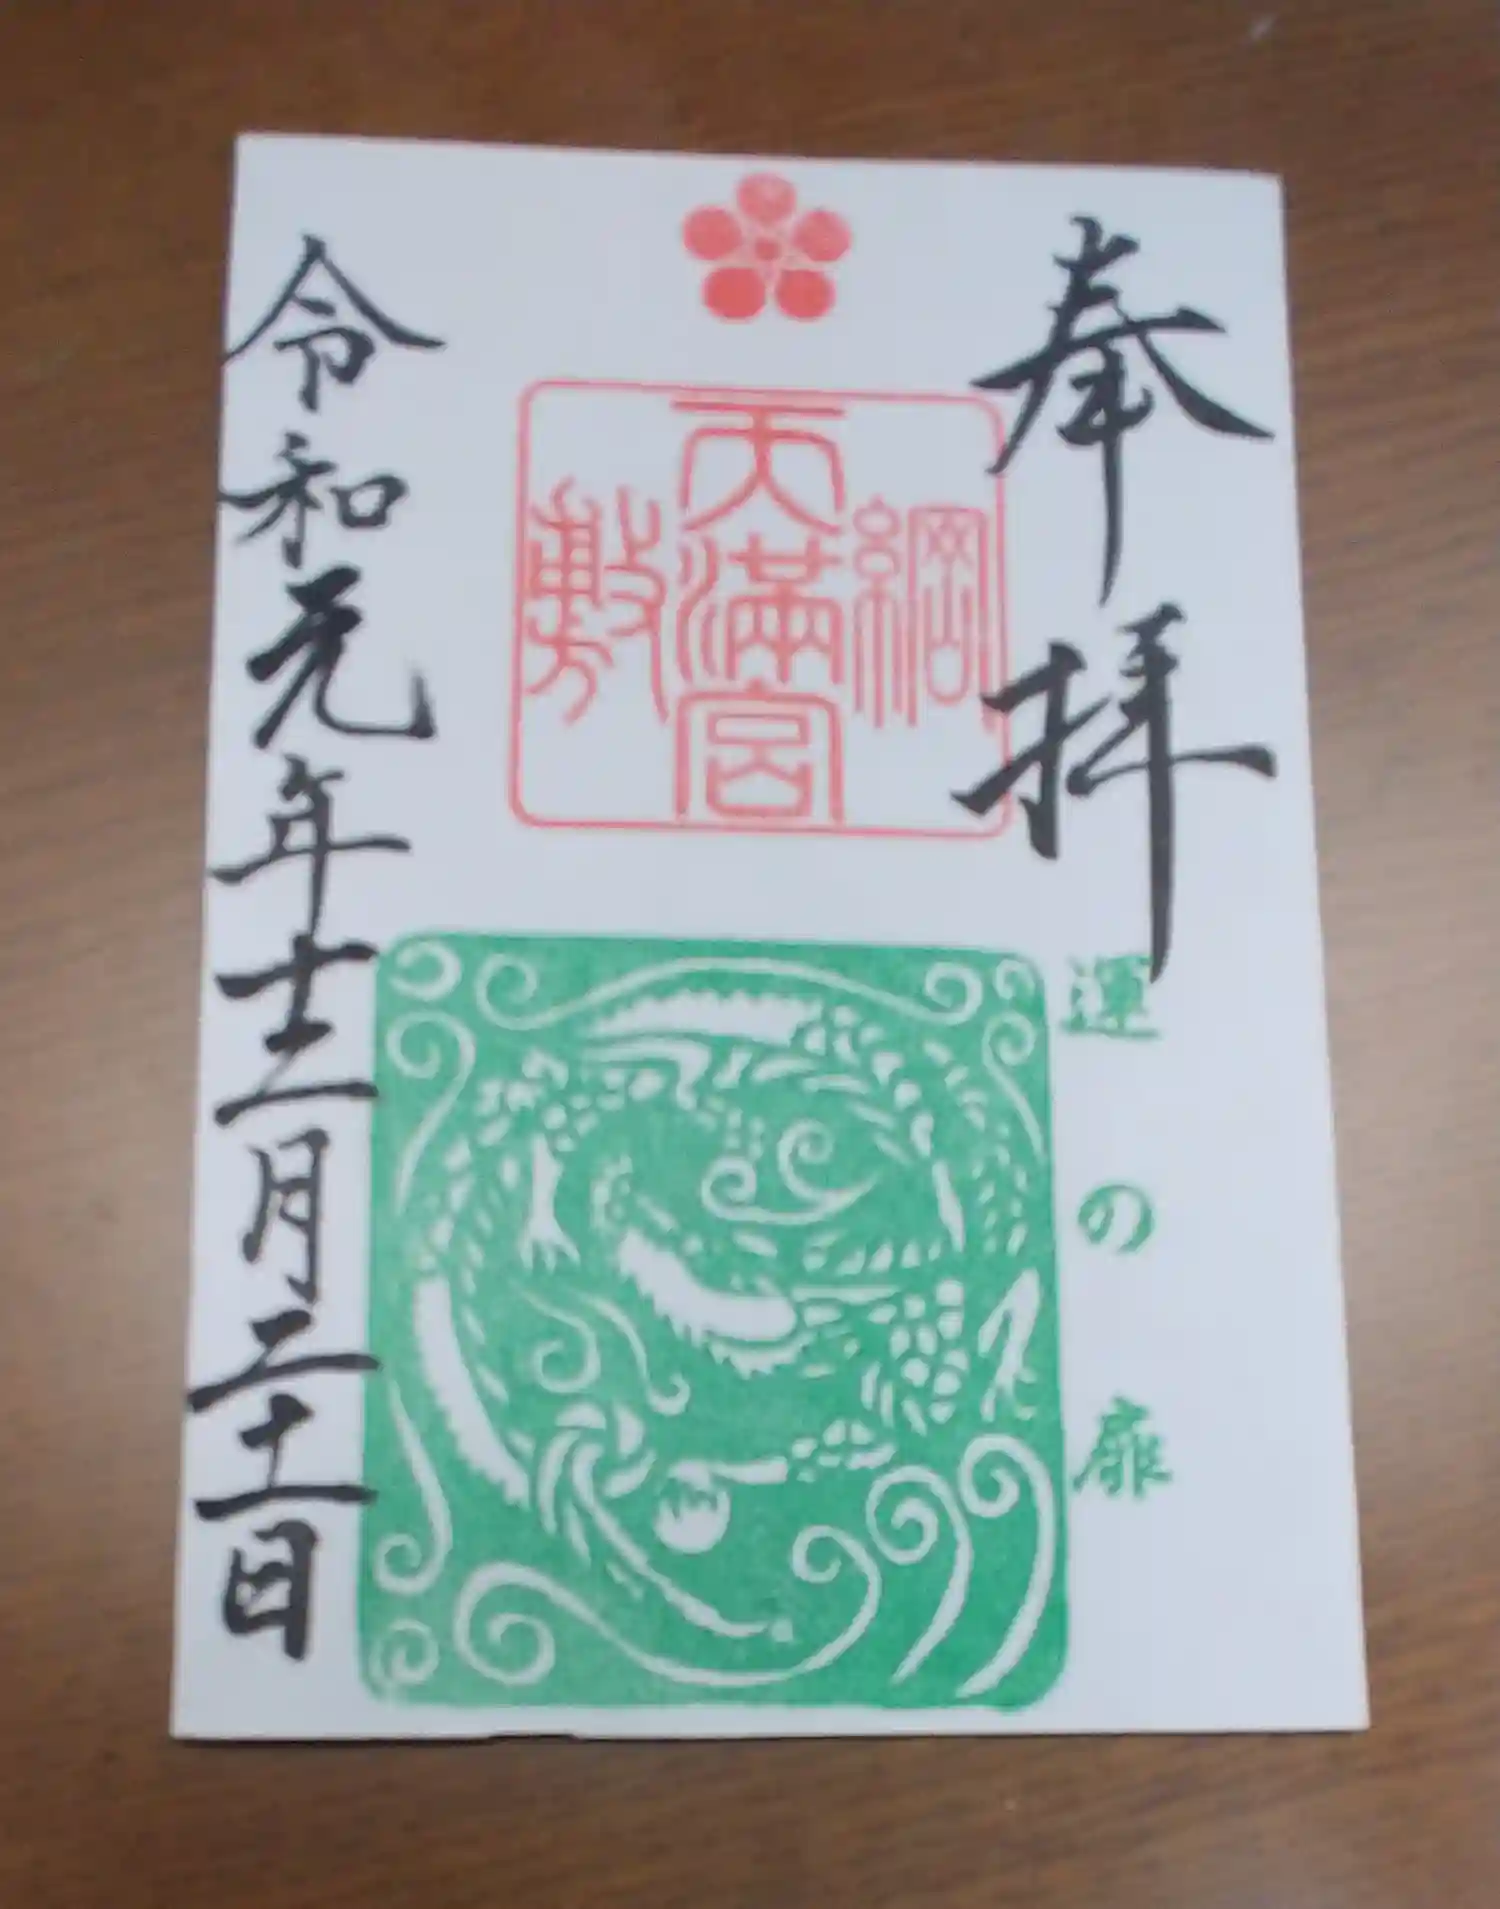 奉拝
運の扉
綱
天満宮
敷
令和元年十二月二十一日